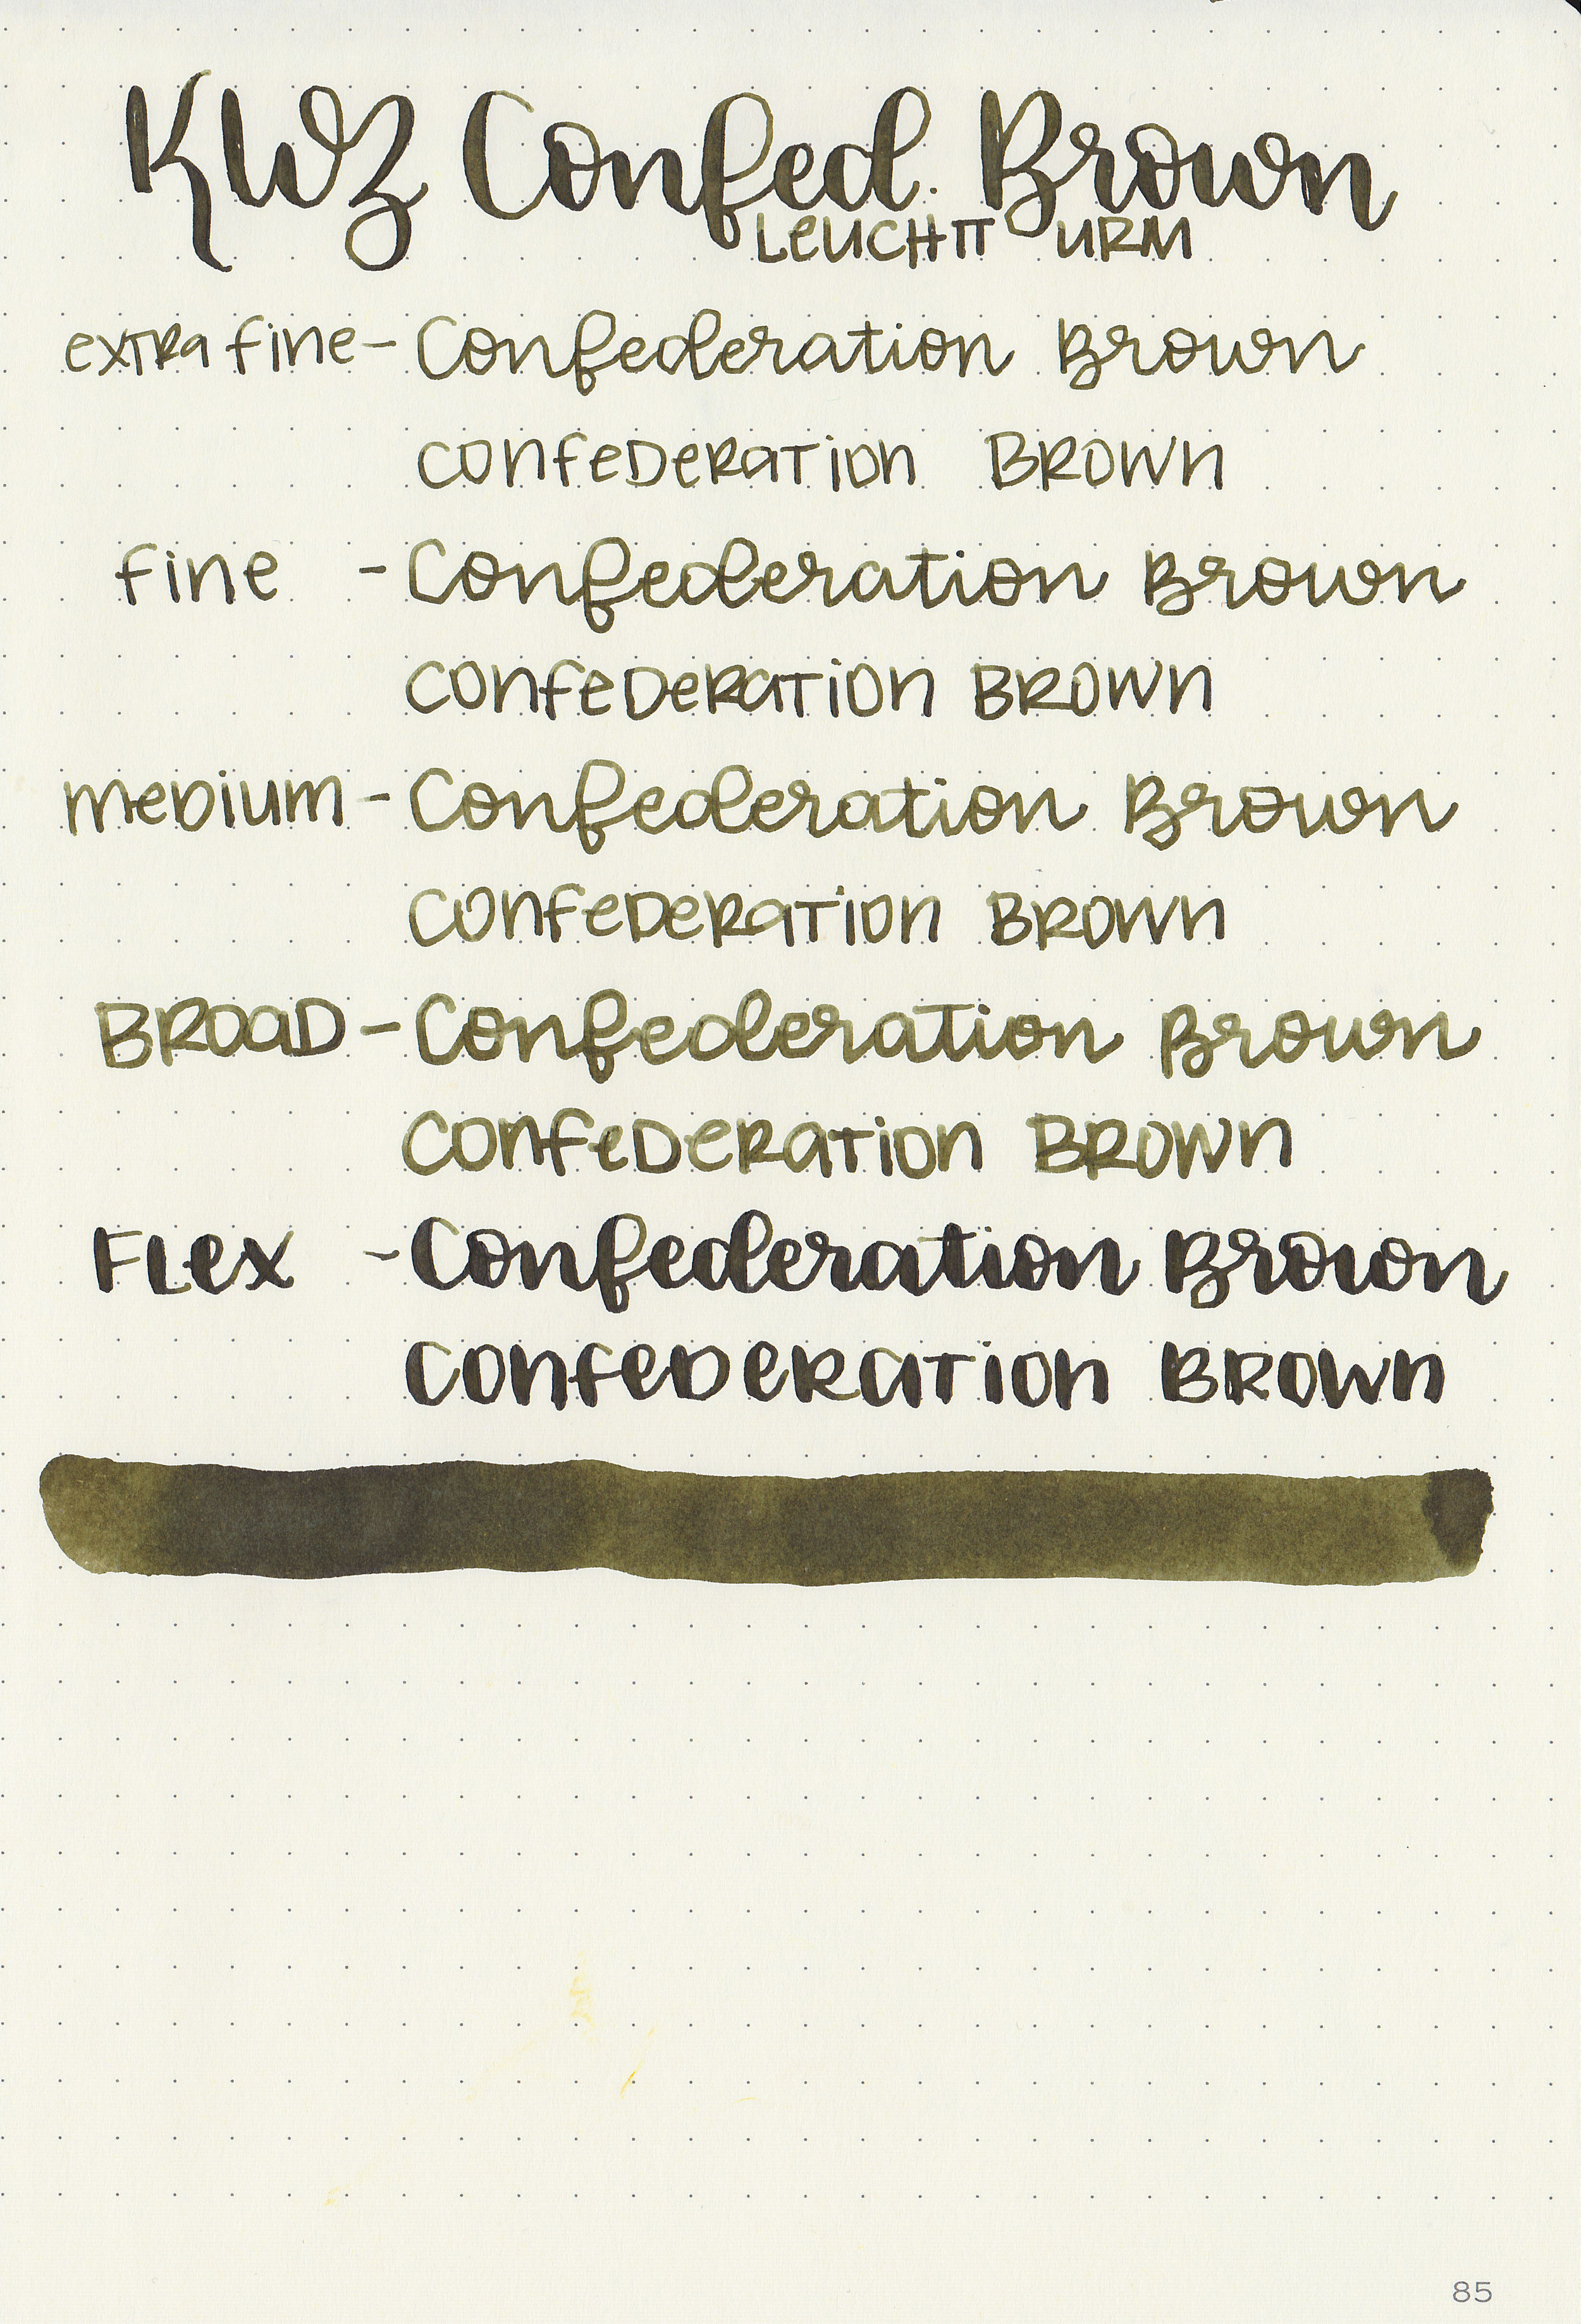 KWZ Confed. Brown
LEUCHTTURM
extra fine - Confederation Brown
Confederation Brown
fine - Confederation Brown
Confederation Brown
medium - Confederation Brown
Confederation Brown
BROAD - Confederation Brown
Confederation Brown
FLex - Confederation Brown
Confederation Brown
85